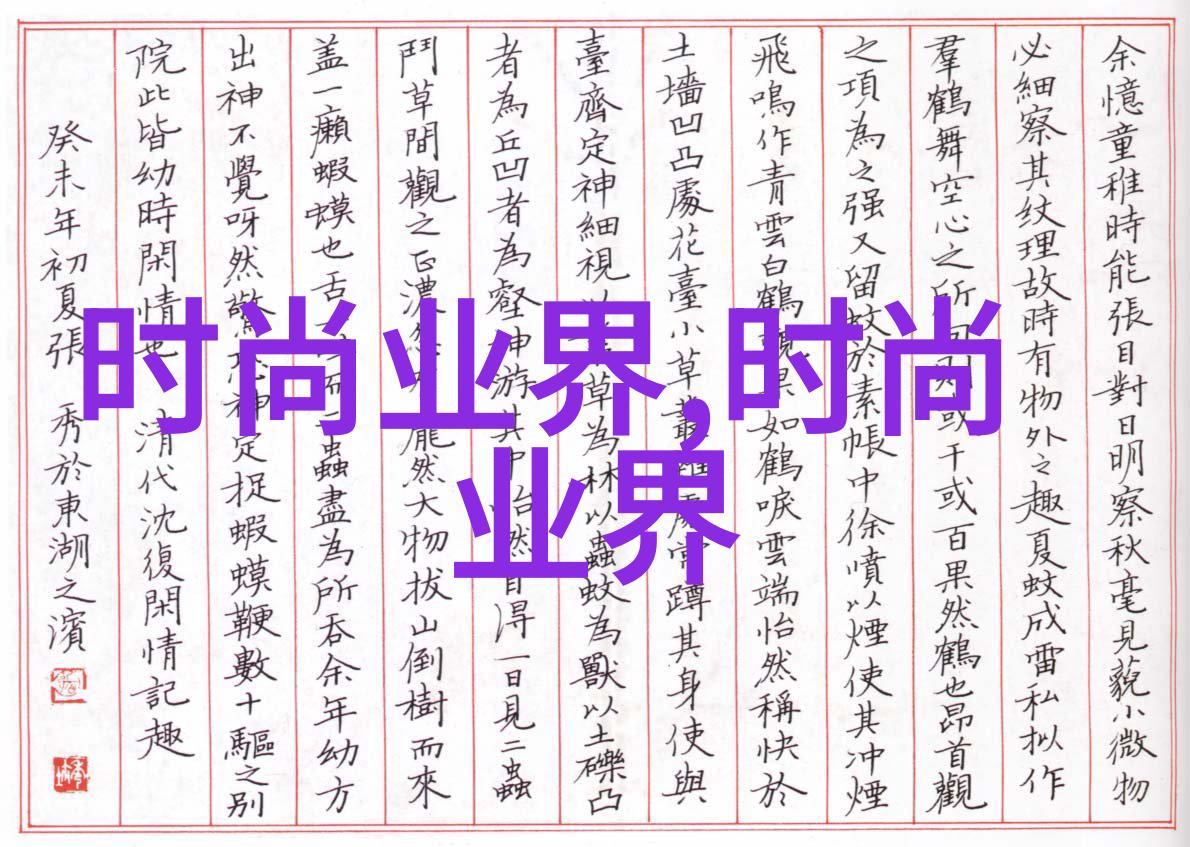 时尚业界,时尚
业界
余憶童稚時能張目對日明察秋毫見藐小微物
必細察其纹理故時有物外之趣夏蚊成雷私拟作
羣鶴舞空心之所向則或千或百果然鶴也昂首觀
之項為之强又留蚊於素帳中徐噴以煙使其冲煙
飛鳴作青雲白鶴觀果如鶴唳雲端怡然稱快於
土墻凹凸處花臺小草叢雜處常蹲其身使與
臺齊定神細視以草為林以蟲蚊為獸以土礫凸
者為丘凹者為壑神游其中怡然自得一日見二蟲
鬥草間觀之正濃龐然大物拔山倒樹而來
盖一癩蝦蟆也舌一而二蟲盡為所吞余年幼方
出神不覺呀然驚恐神定捉蝦蟆鞭數十驅之别
院此皆幼時閑情也 清代沈復閑情記趣
癸未年初夏張 秀於東湖之濱